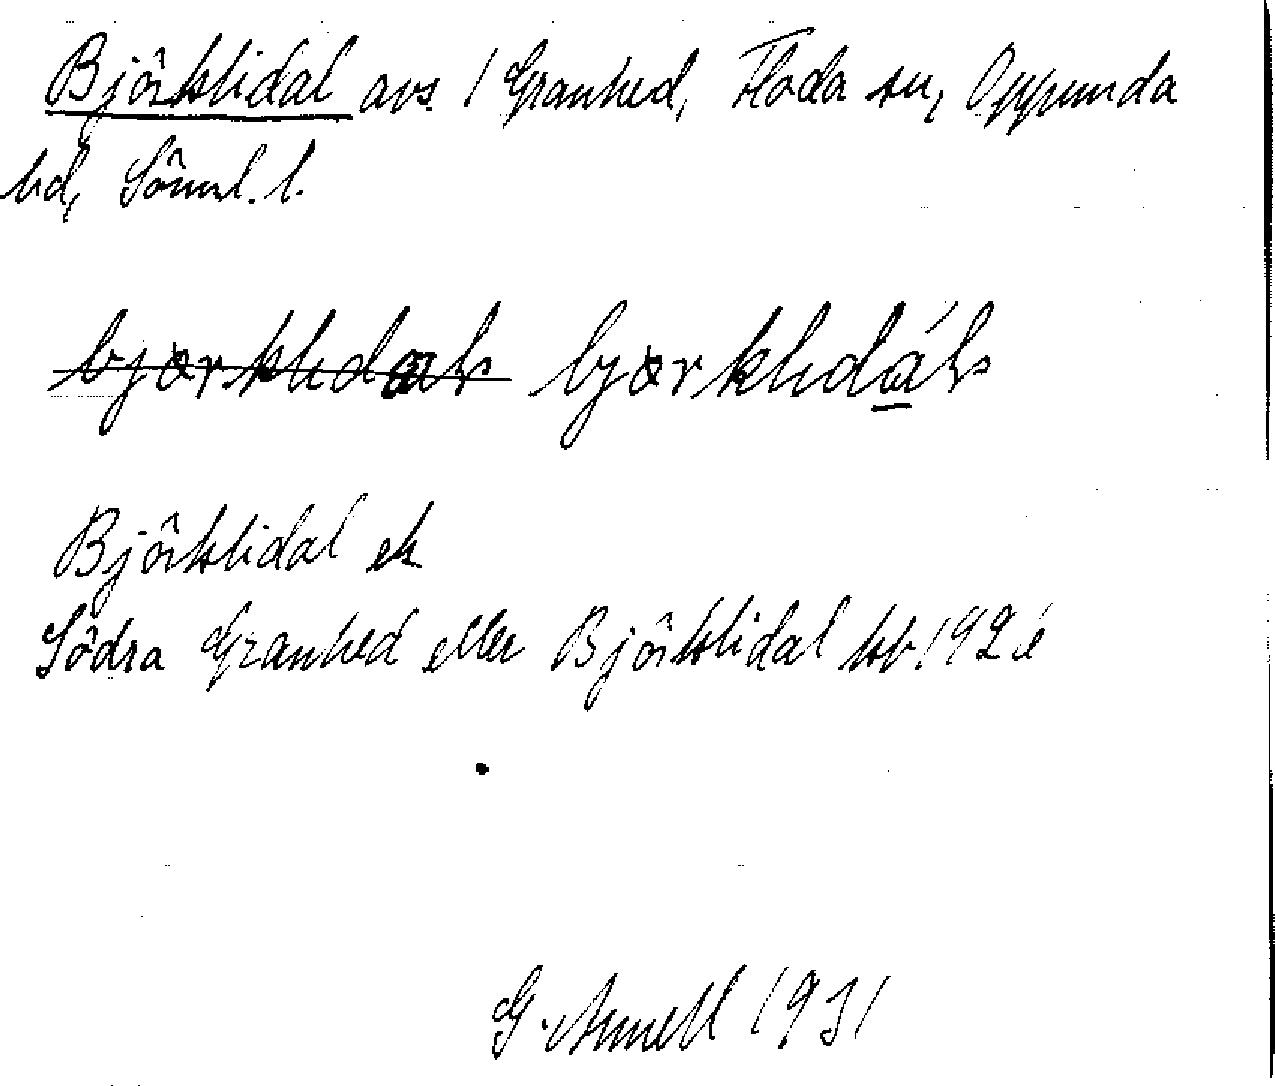 Björklidal avs. / Granhed, Floda sn, Oppunda
hd, Söml. l.
bjɵrklidals bjɵrklidáls
Björklidal ek
Södra Granhed eller Björklidal kb. 192
G. Arnell 1931